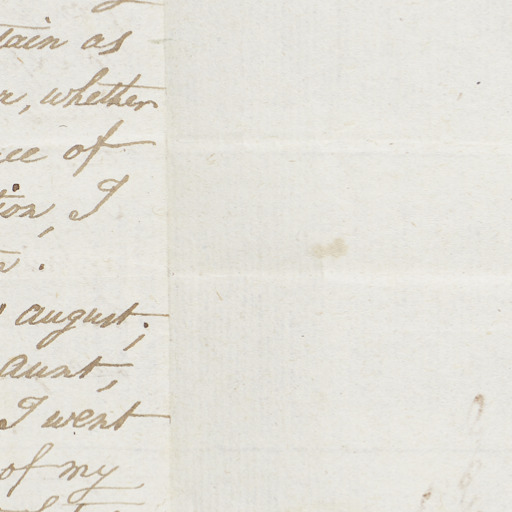 tain as
r, whether
ce of
tion, I
august;
aunt,
I went
of my